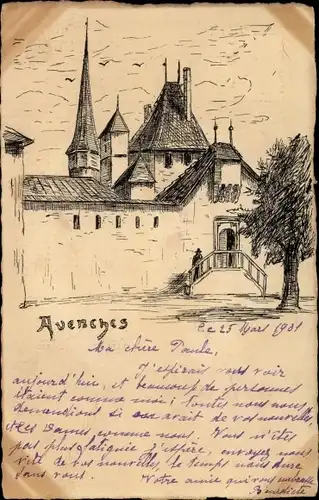 Avenches
Le 25 Mars 1901
Ma chère Paule,
J'espérais vous voir
aujourd'hui, et beaucoup de personnes
étaient comme moi; toutes nous nous
demandions si on avait de vos nouvelles,
et les Dames comme nous. Vous n'êtes
pas plus fatiguée j'espère, envoyez nous
vite de vos nouvelles, le temps nous dure
sans vous. Votre amie qui vous embrasse
Bénédicte